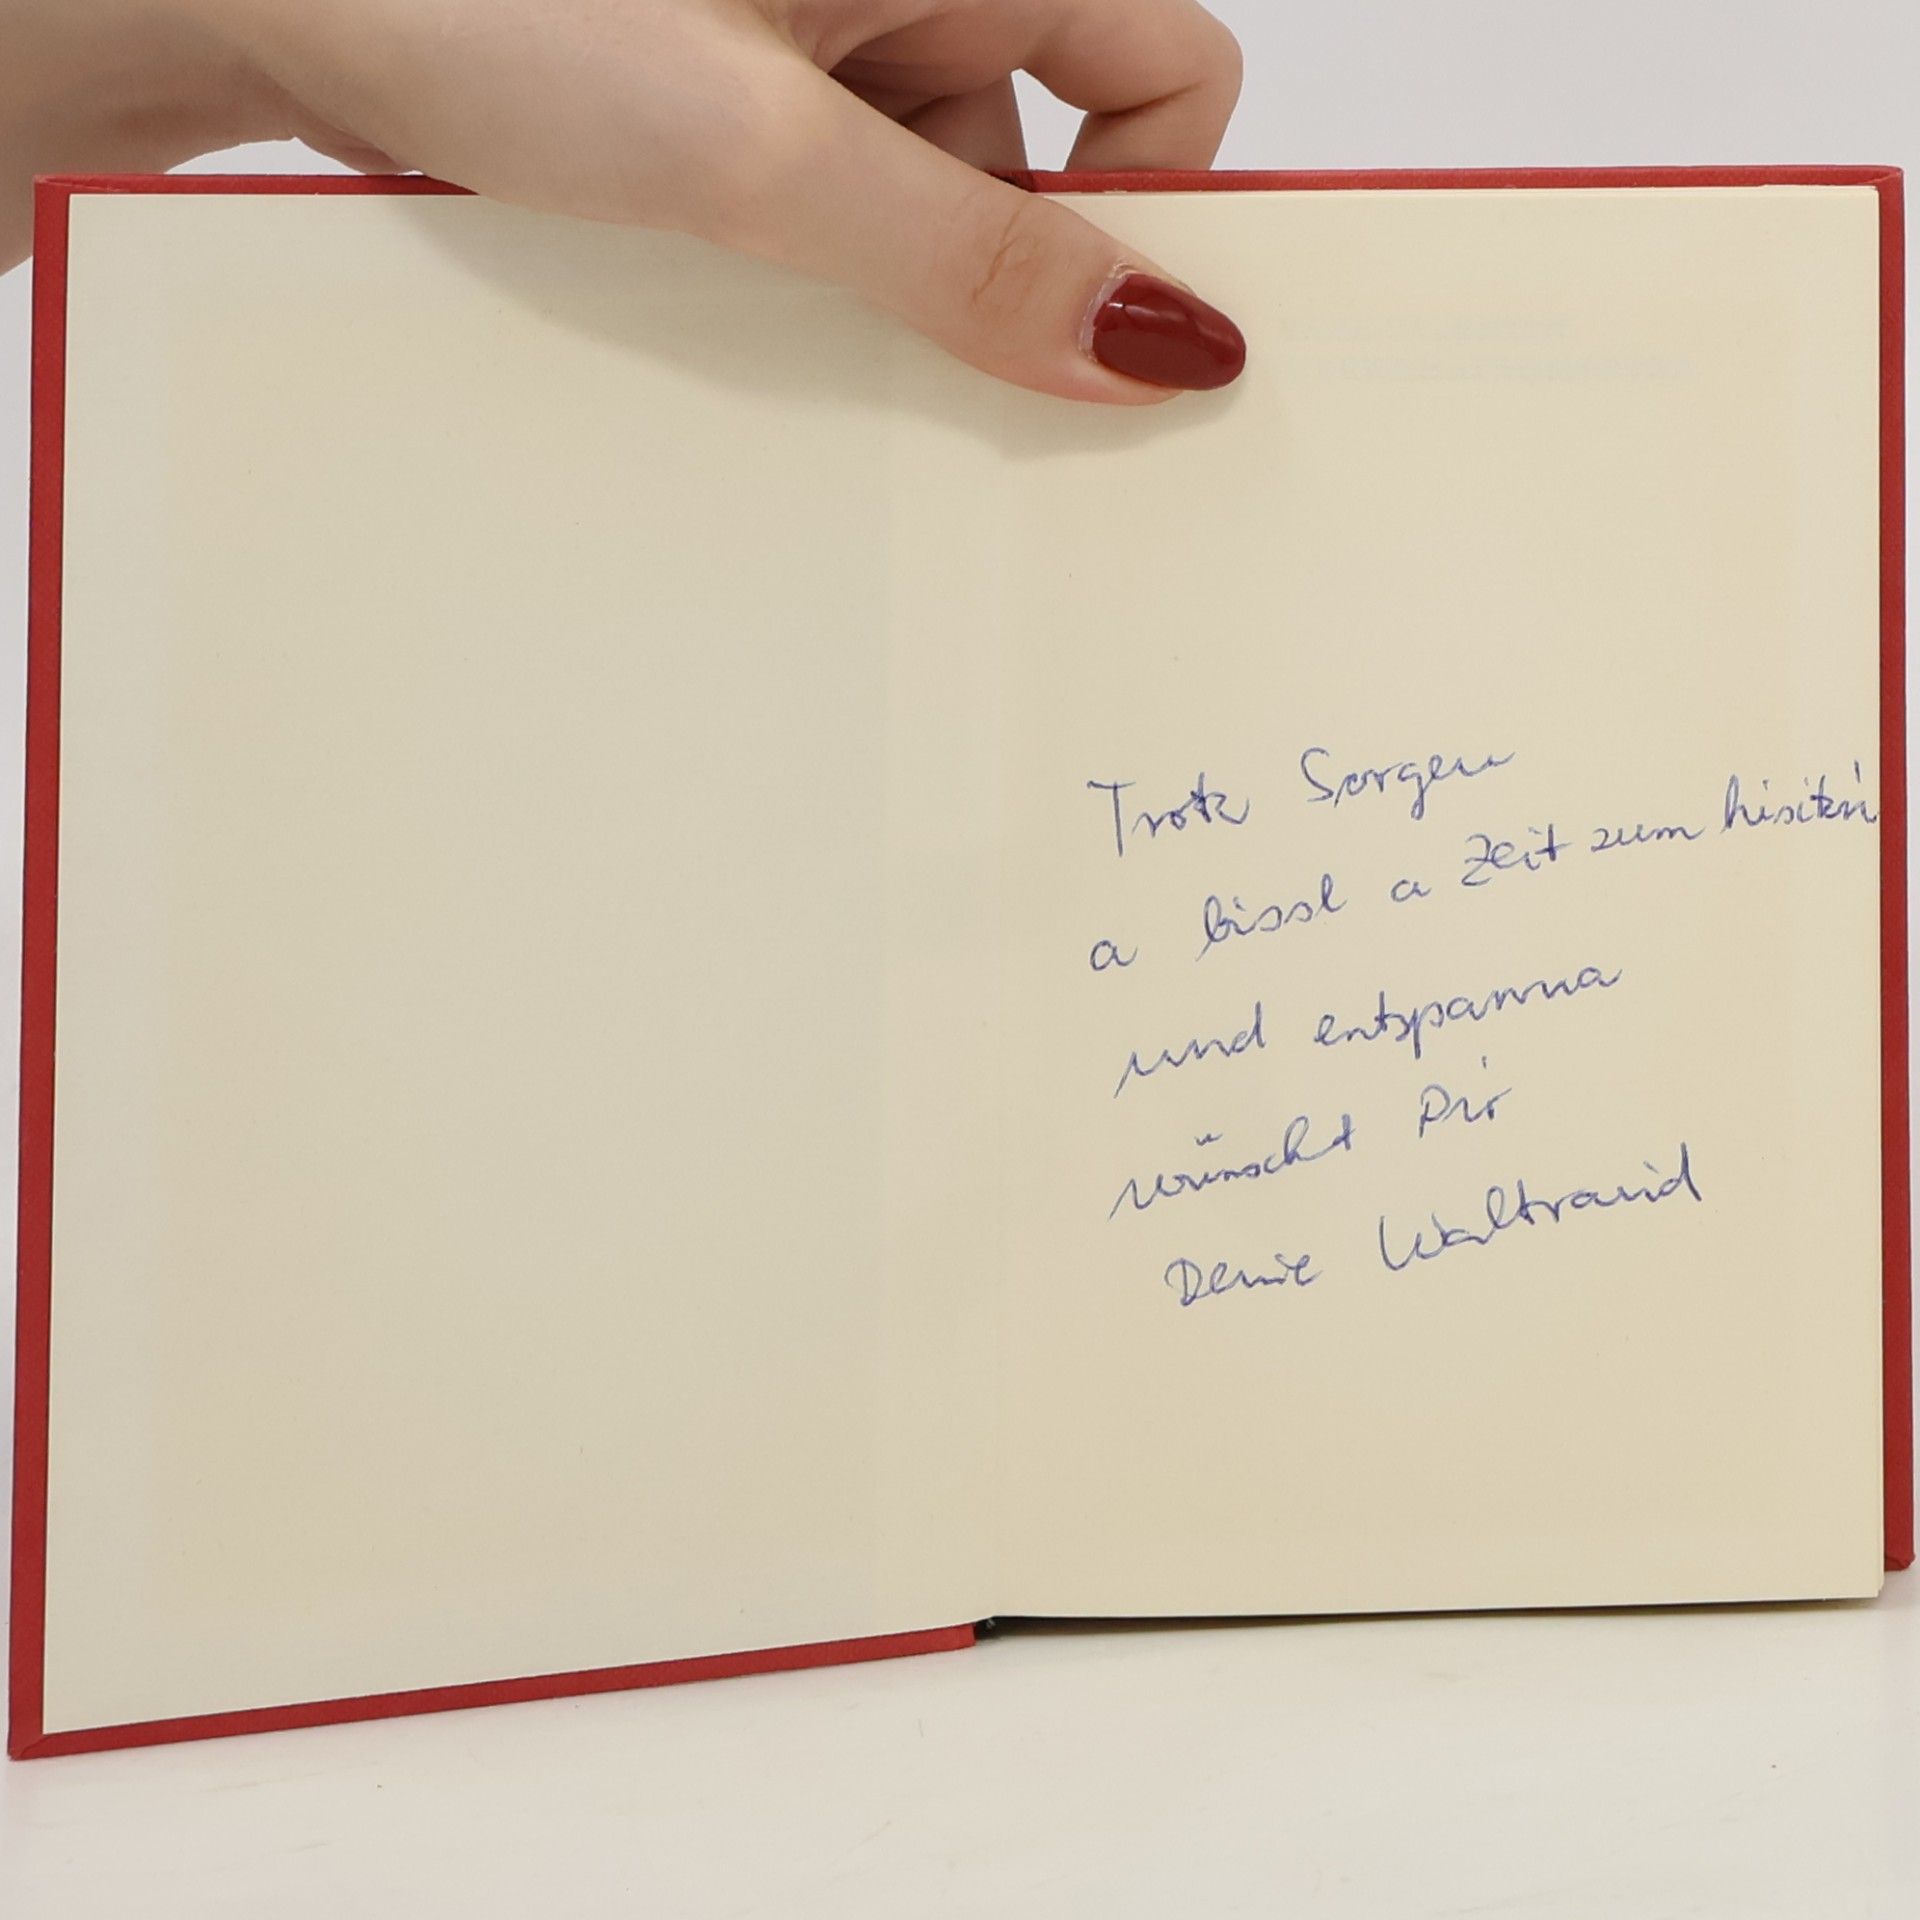 Trotz Sorgen
a bissl a Zeit zum hisitzn
und entspanna
wünscht Dir
Deine Waltraud